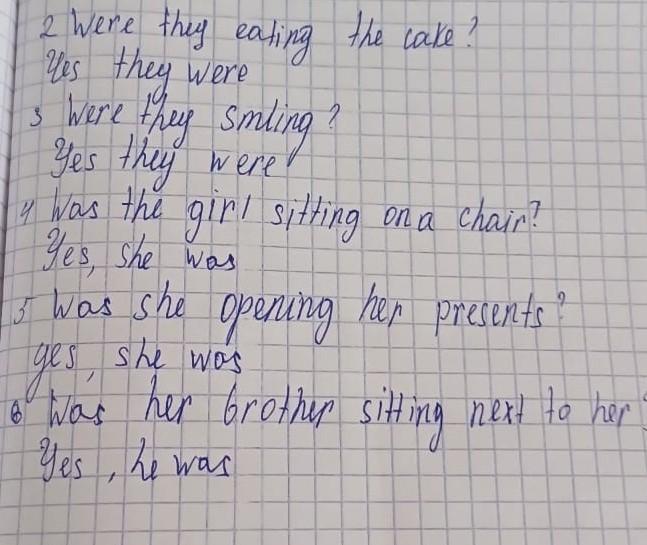 2 Were they eating the cake?
Yes they were
3 Were they smiling?
Yes they were
4 Was the girl sitting on a chair?
Yes, she was
5 Was she opening her presents?
yes, she was
6 Was her brother sitting next to her?
Yes, he was